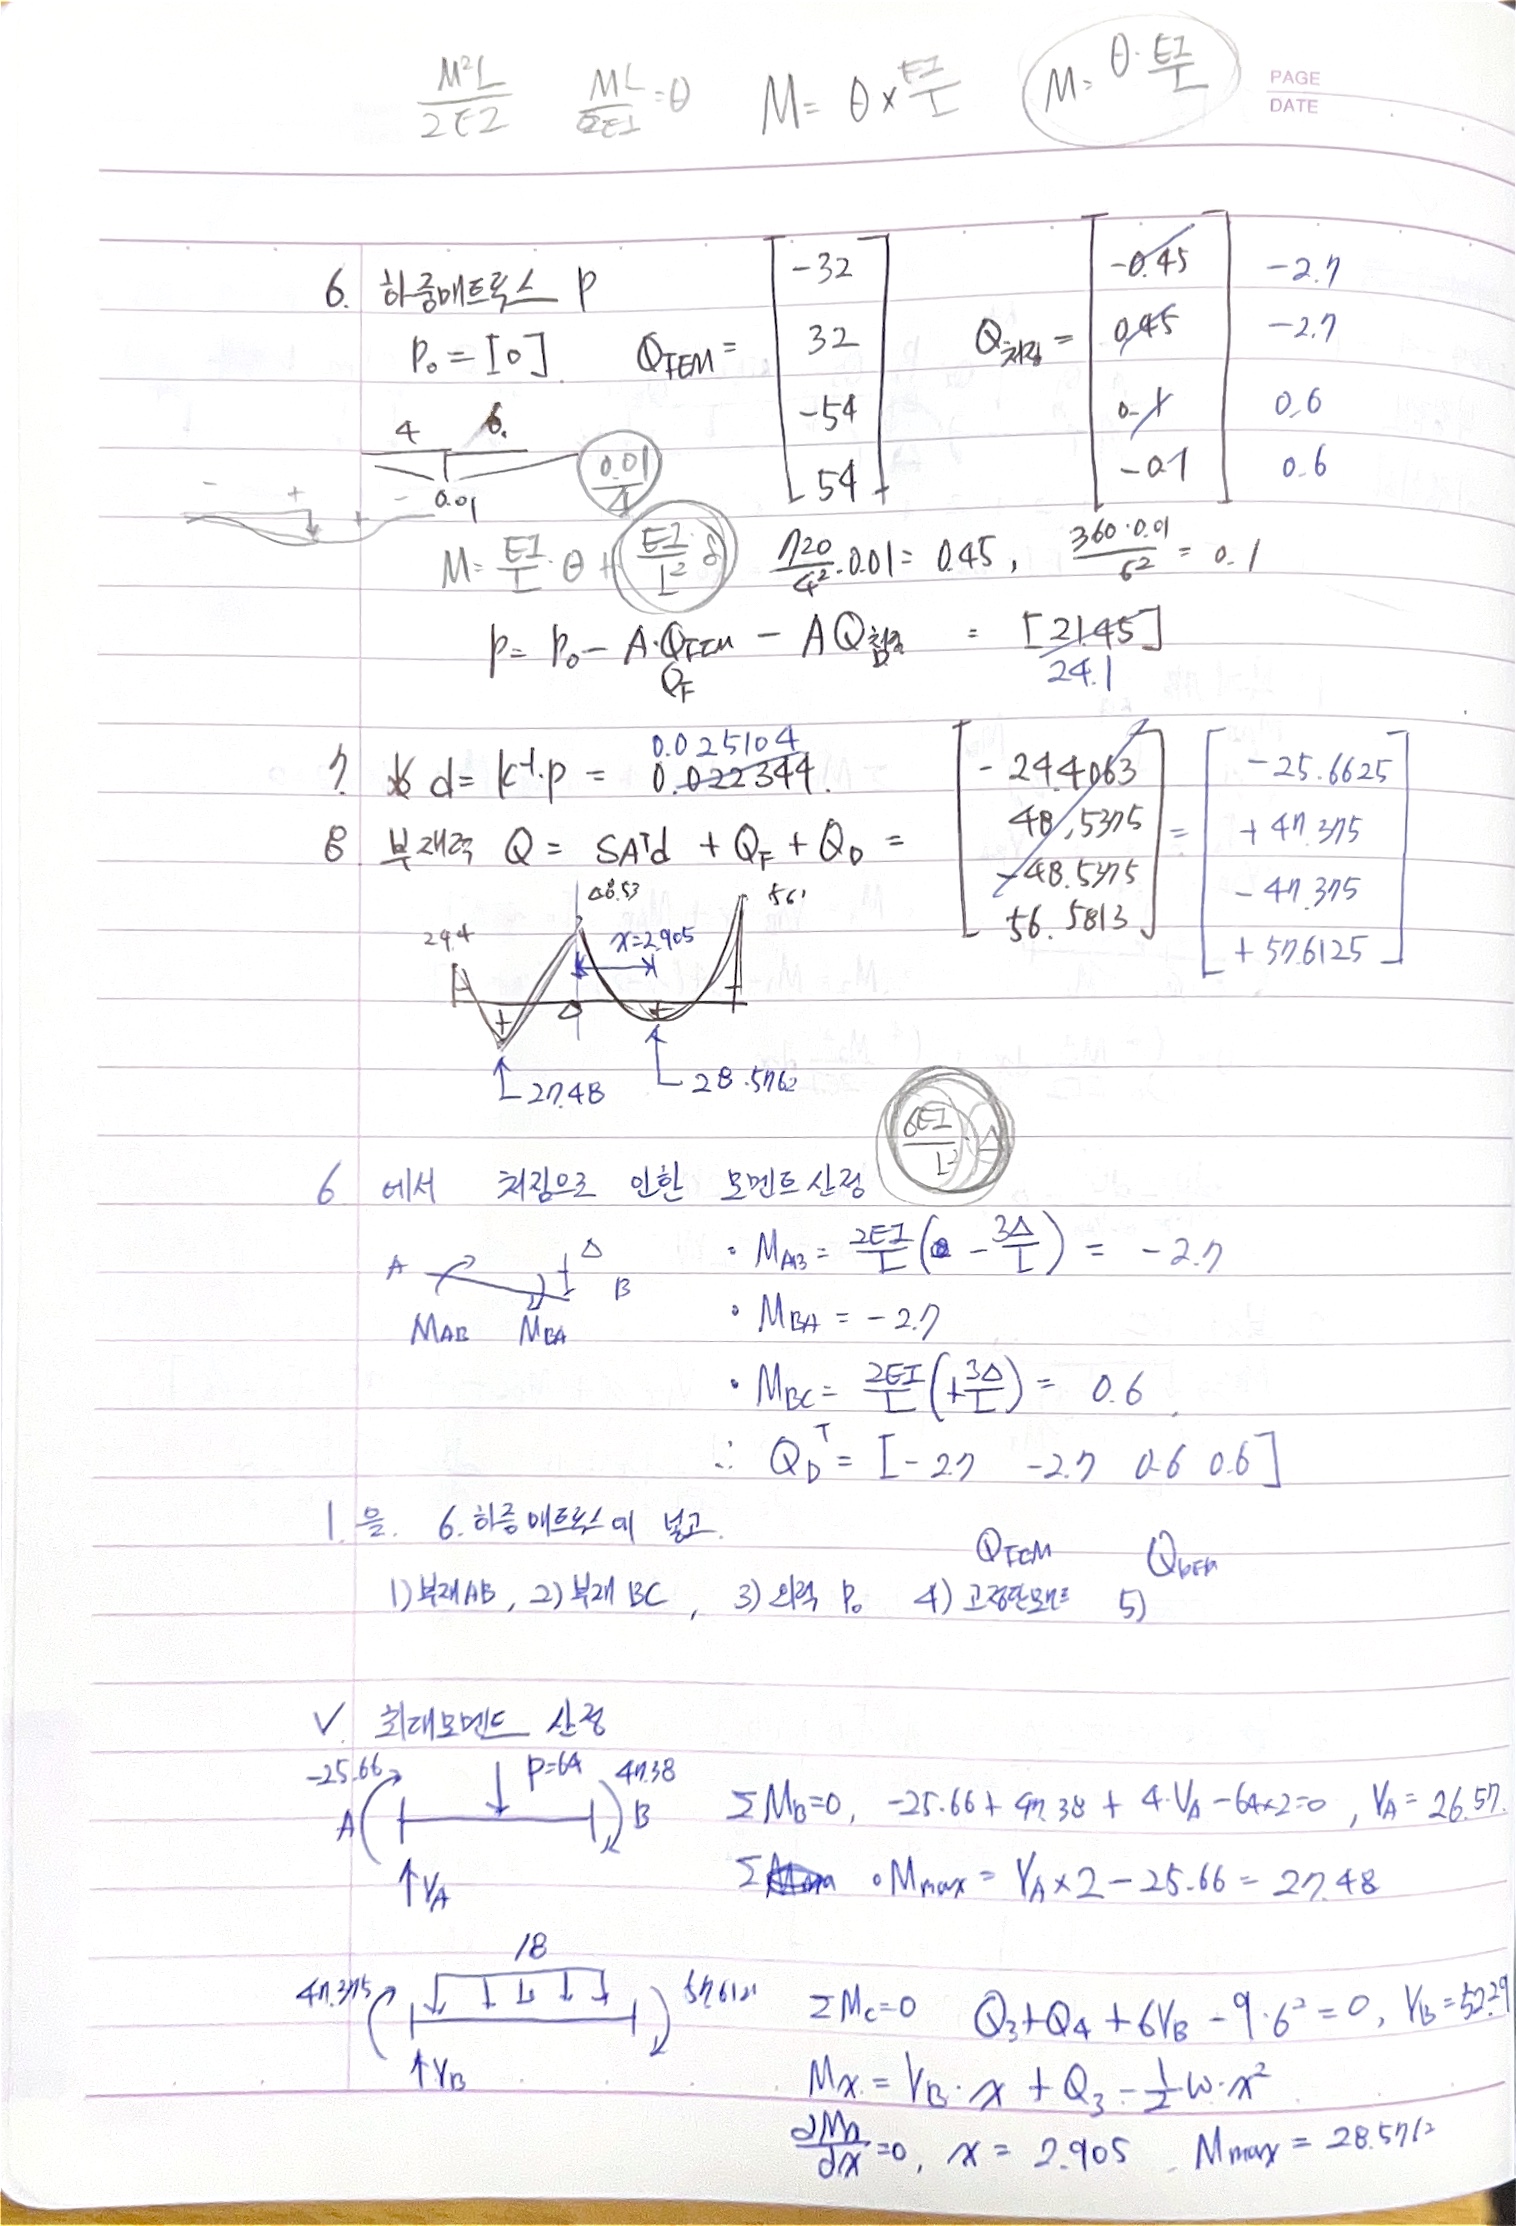 M²L/2EI ML/2EI=θ M= θ×EI/L M= θ·EI/L
PAGE
DATE
6. 하중매트릭스 P
P₀ = [0] Q_FEM = [-32 32 -54 54] Q처짐 = [-0.45 0.45 0.1 -0.1] -2.7 -2.7 0.6 0.6
4 6
0.01
0.01/4
- + - +
M= EI/L·θ + EI/L²·δ 720/4²·0.01= 0.45, 360·0.01/6² = 0.1
P= P₀- A·Q_FEM - AQ처짐 = [21.45]
Q_F D 24.1
0.025104
7. d= K⁻¹·P = 0.022344.
8 부재력 Q = SAᵀd + Q_F + Q_D = [-24.4063 48.5375 -48.5375 56.5813] = [-25.6625 +47.375 -47.375 +57.6125]
24.4 48.53 56.1
x=2.905
27.48 28.5762
6EI/L²·Δ
6 에서 처짐으로 인한 모멘트 산정
A Δ B
M_AB M_BA
• M_AB = 2EI/L(0 - 3Δ/L) = -2.7
• M_BA = -2.7
• M_BC = 2EI/L(+3Δ/L) = 0.6
∴ Q_Dᵀ = [-2.7 -2.7 0.6 0.6]
1. 을. 6. 하중매트릭스에 넣고.
Q_FEM
1) 부재AB, 2) 부재 BC, 3) 외력 P₀ 4) 고정단모멘트 5)
✓. 최대모멘트 산정
-25.66 P=64 47.38
A B
V_A
ΣM_B=0, -25.66+47.38+4·V_A-64×2=0, V_A= 26.57.
Σ • Mmax = V_A×2-25.66 = 27.48
18
47.375 57.6121
V_B
ΣM_C=0 Q₃+Q₄+6V_B-9·6²=0, V_B=52.29
Mx = V_B·x + Q₃ - 1/2 w·x²
dMx/dx=0, x = 2.905 Mmax = 28.5762